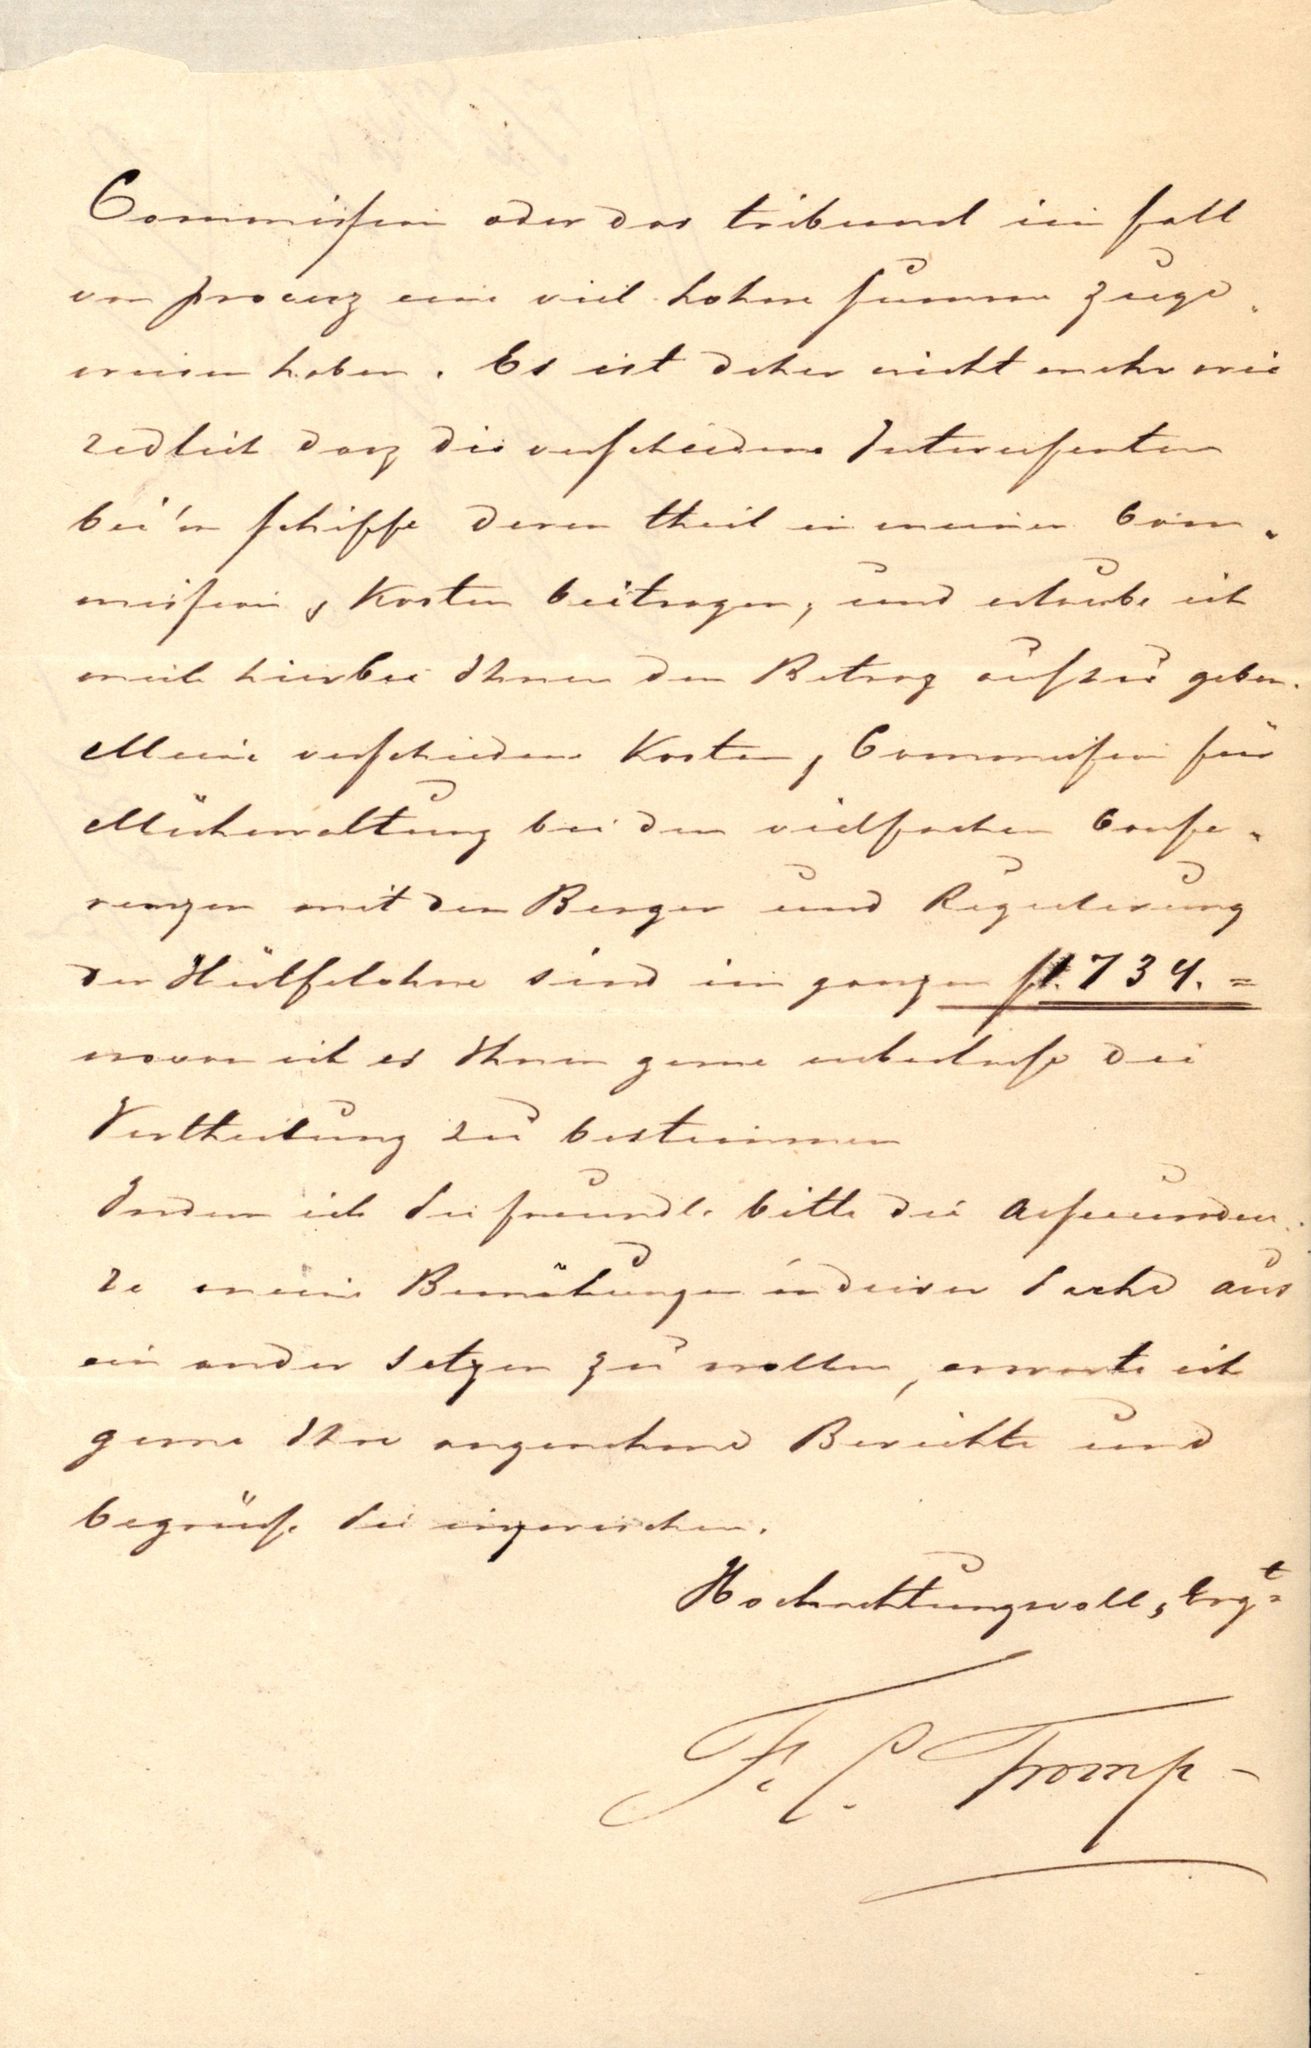 Commission oder das tribunal im fall
von procesz eine viel hohere summe zuge-
wiesen haben. Es ist daher nicht mehr wie
redlich dasz die verschiedene Interessenten
bei'm schiffe deren theil in meiner Com-
mission & Kosten beitragen, und erlaube ich
mich hierbei Ihnen den Betrag aufzu geben.
Meine verschiedene Kosten, Commission für
Mühewaltung bei den vielfachen Confe-
renzen mit den Berger und Regulierung
der Hülfslohne sind im ganzen fl. 734.=
wovon ich es Ihnen gerne ueberlasse die
Vertheilung zu bestimmen
Indem ich Sie freundl. bitte die Assecuradeu-
re meine Bemühungen in dieser Sache aus
ein ander setzen zu wollen, erwarte ich
gerne Ihre angenehme Berichte und
begrüsse Sie inzwischen.
Hochachtungsvoll, Ergt
F. C. Tromp